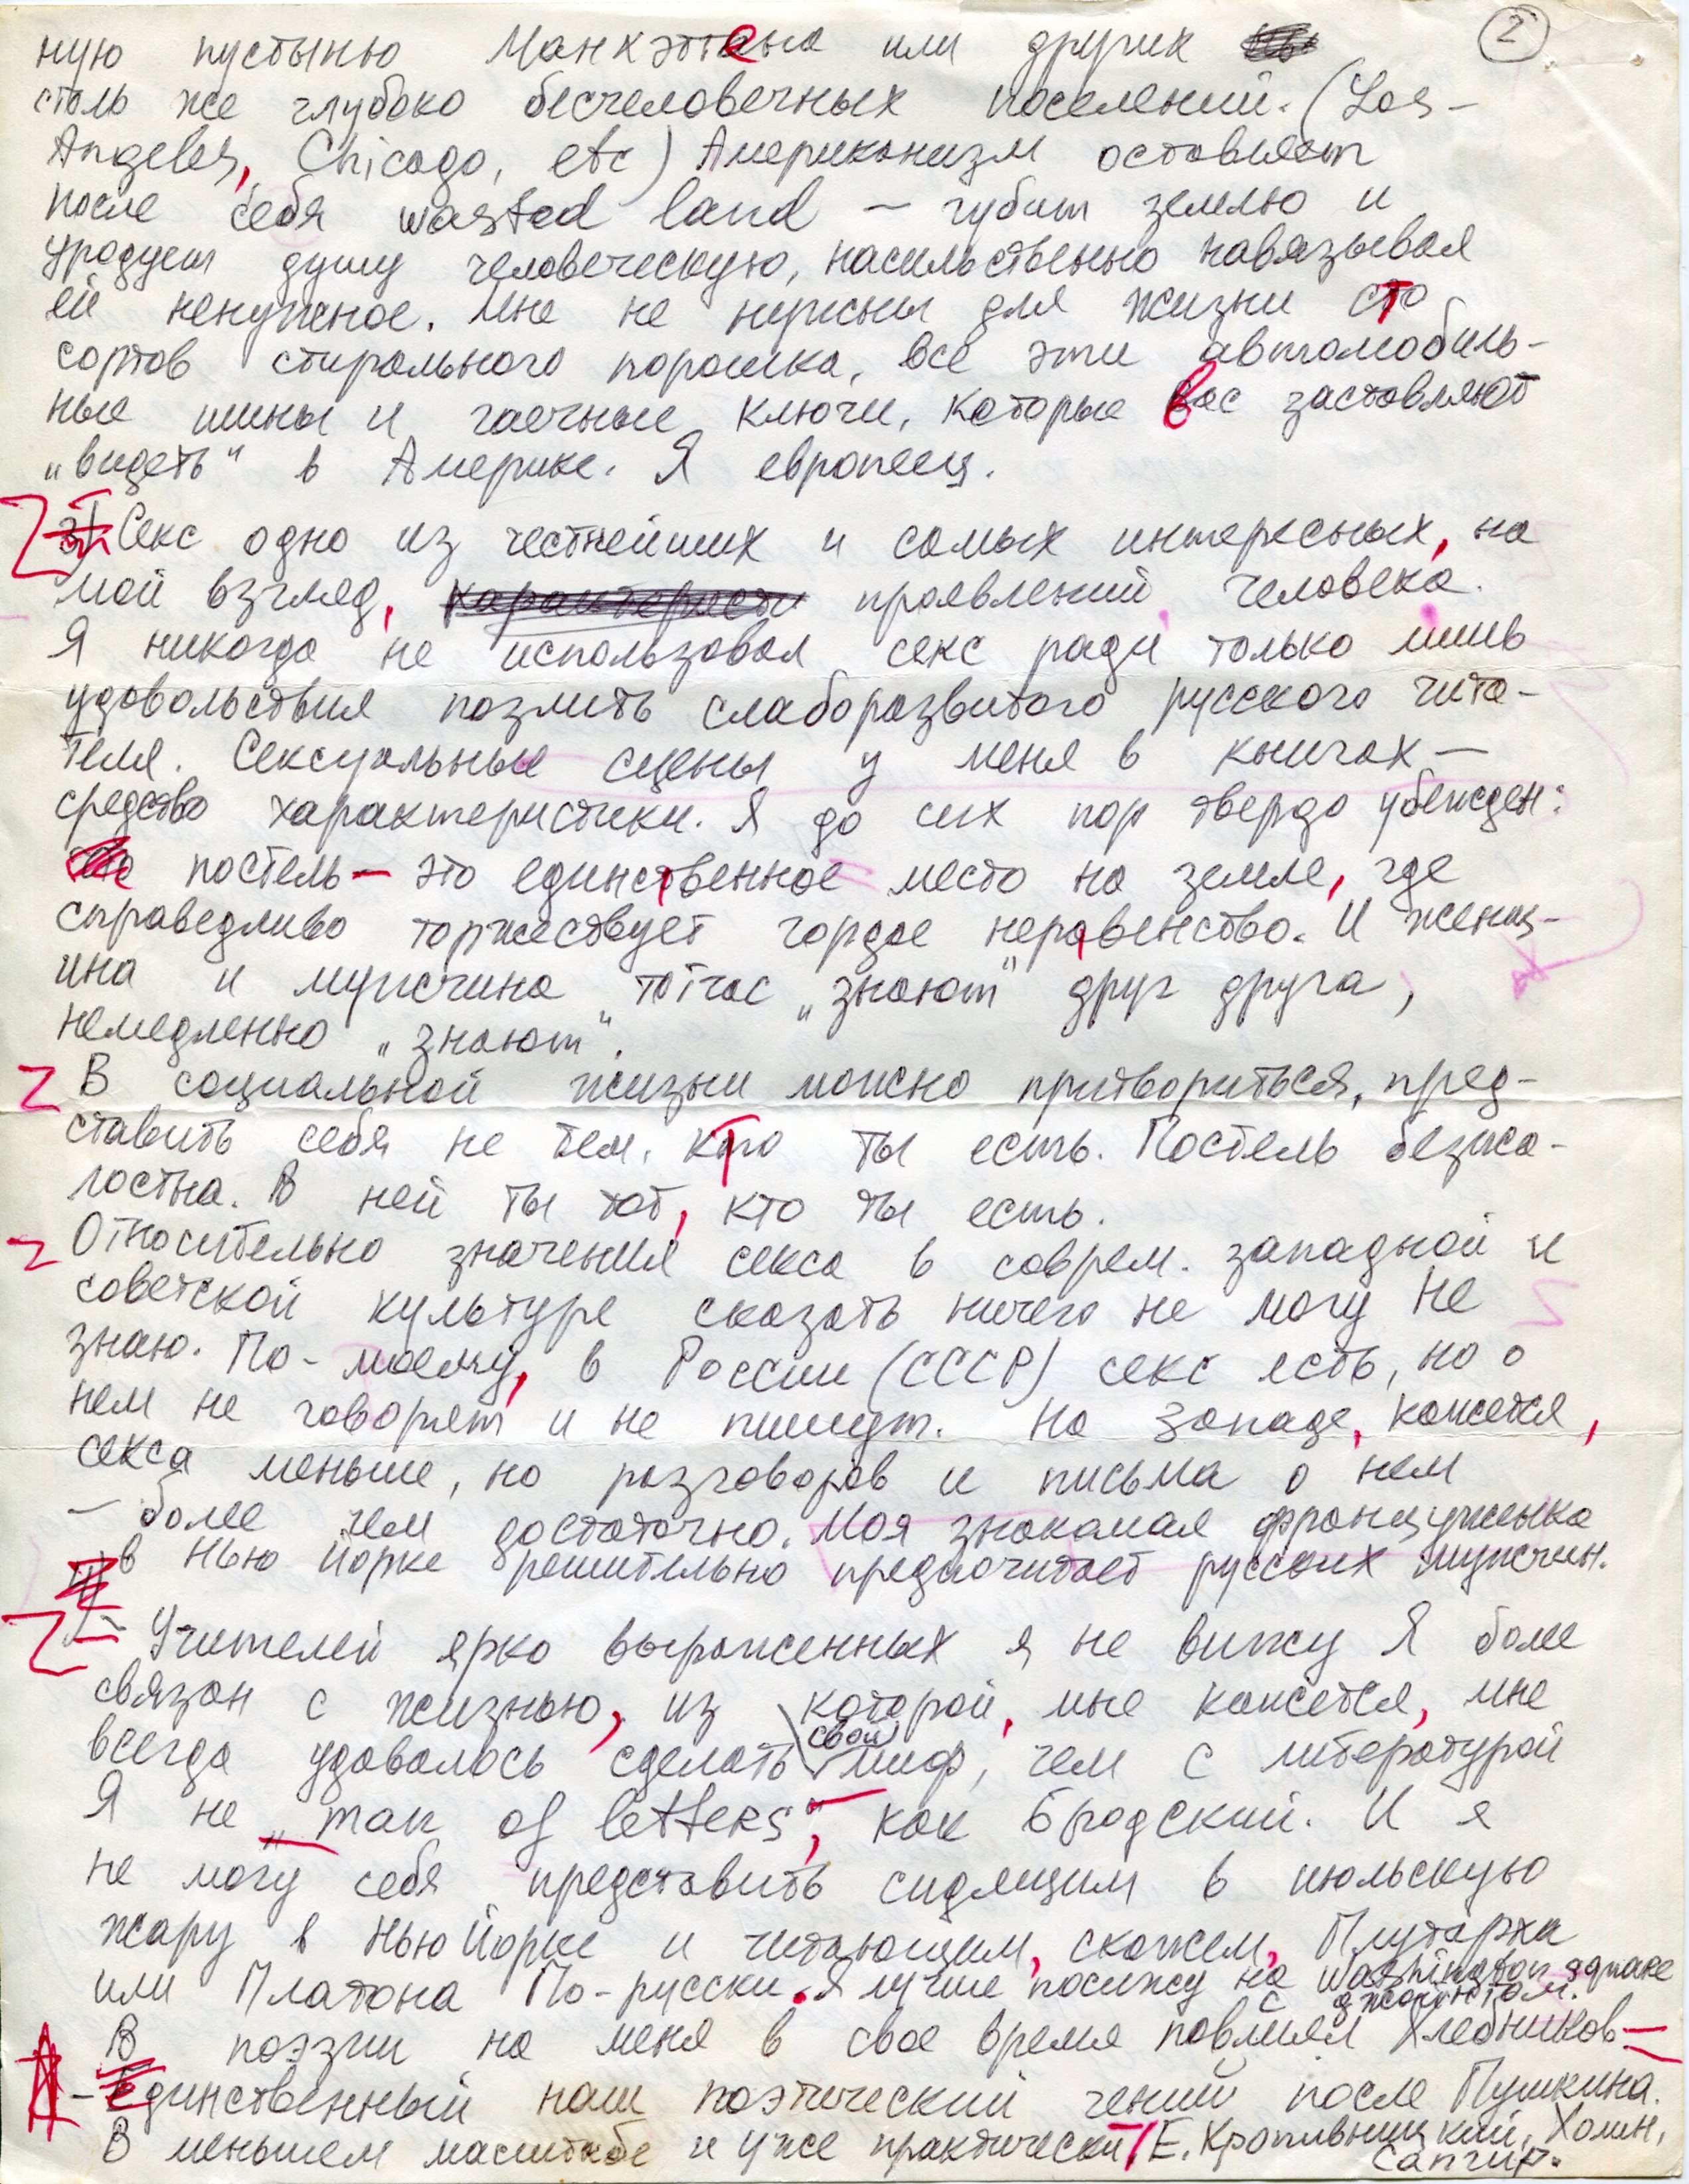 2
ную пустыню Манхэттена или других
столь же глубоко бесчеловечных поселений. (Los-
Angeles, Chicago, etc) Американизм оставляет
после себя wasted land — губит землю и
уродует душу человеческую, насильственно навязывая
ей ненужное. Мне не нужны для жизни сто
сортов стирального порошка, все эти автомобиль-
ные шины и гаечные ключи, которые вас заставляют
„видеть“ в Америке. Я европеец.
Секс одно из честнейших и самых интересных, на
мой взгляд, проявлений человека.
Я никогда не использовал секс ради только лишь
удовольствия позлить слаборазвитого русского чита-
теля. Сексуальные сцены у меня в книгах —
средство характеристики. Я до сих пор твердо убежден:
постель — это единственное место на земле, где
справедливо торжествует гордое неравенство. И женщ-
ина и мужчина тотчас „знают“ друг друга,
немедленно „знают“.
В социальной жизни можно притвориться, пред-
ставить себя не тем, кто ты есть. Постель безжа-
лостна. В ней ты тот, кто ты есть.
Относительно значения секса в соврем. западной и
советской культуре сказать ничего не могу Не
знаю. По-моему, в России (СССР) секс есть, но о
нем не говорят и не пишут. На Западе, кажется,
секса меньше, но разговоров и письма о нем
— более чем достаточно. Моя знакомая француженка
в Нью Йорке решительно предпочитает русских мужчин.
— Учителей ярко выраженных я не вижу Я более
связан с жизнью, из которой, мне кажется, мне
всегда удавалось сделать свой миф, чем с литературой
Я не „man of letters“, как Бродский. И я
не могу себя представить сидящим в июльскую
жару в Нью Йорке и читающим, скажем, Плутарха
или Платона По-русски. Я лучше посижу на Washington сквере
с джойнтом.
В поэзии на меня в свое время повлиял Хлебников —
— Единственный наш поэтический гений после Пушкина.
В меньшем масштабе и уже практически Е. Кропивницкий, Холин,
Сапгир.